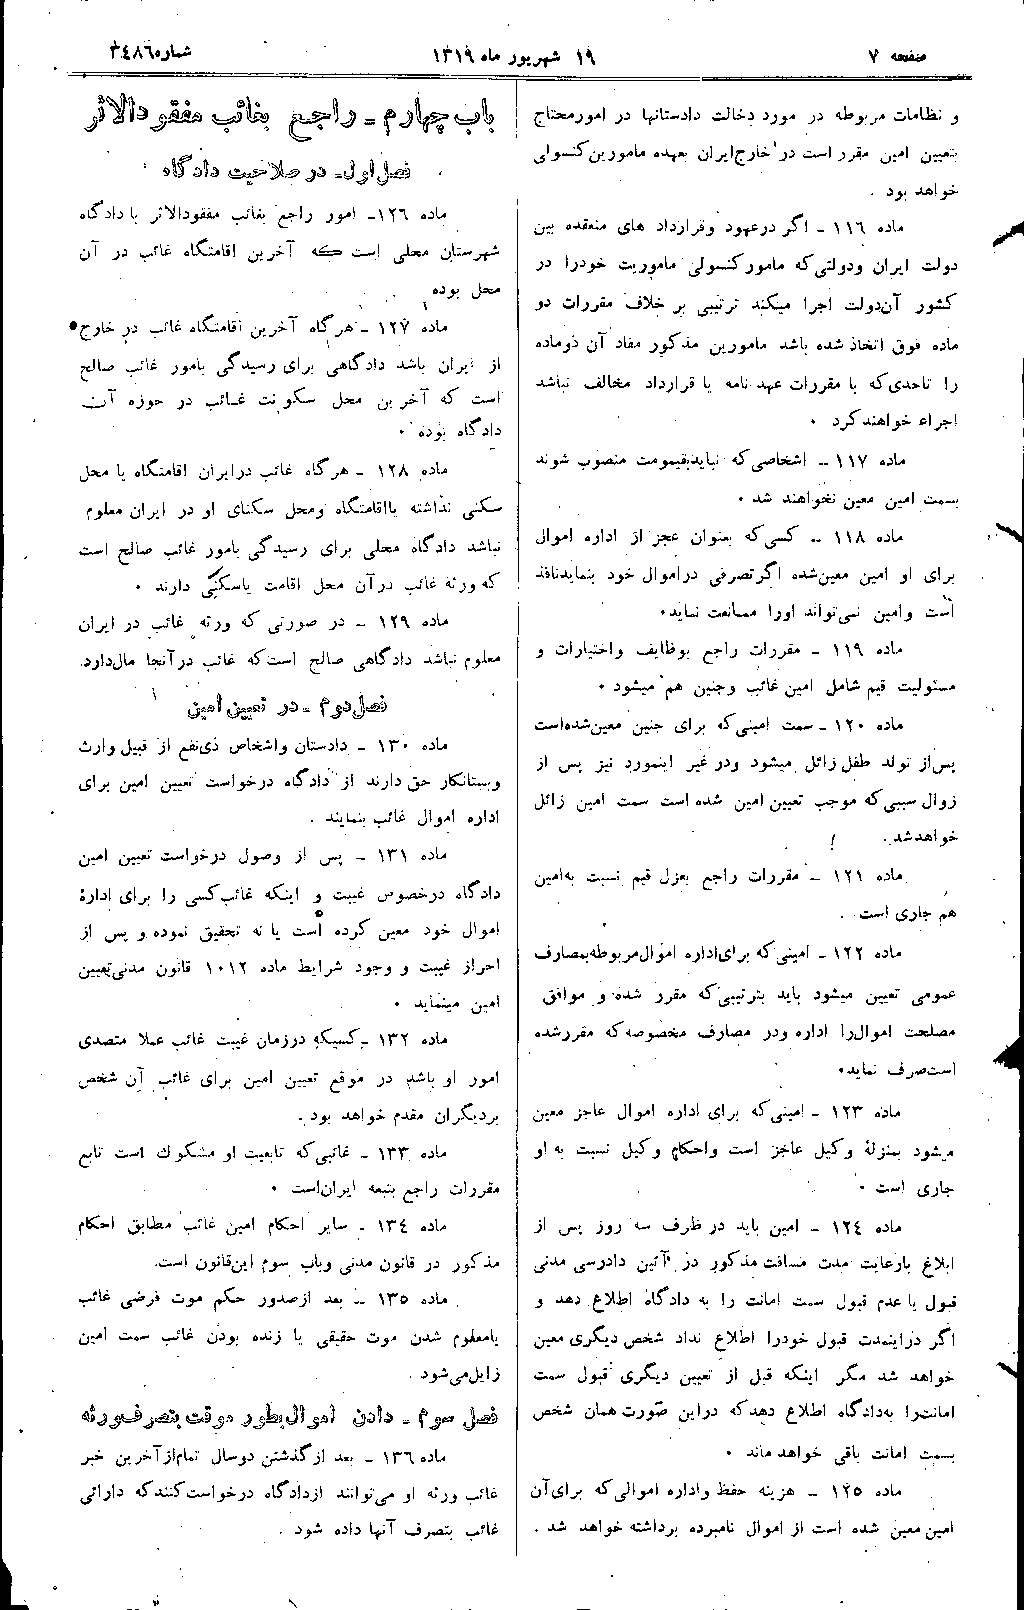 صفحه ۷
۱۹ شهریور ماه ۱۳۱۹
شماره ۳٤۸٦
و نظامات مربوطه در مورد دخالت دادستانها در امور محتاج
بتعیین امین مقرر است در خارج ایران بعهده مامورین کنسولی
خواهد بود .
ماده ۱۱٦ - اگر در عهود و قرارداد های منعقده بین
دولت ایران و دولتی که مامور کنسولی ماموریت خود را در
کشور آن دولت اجرا میکند ترتیبی بر خلاف مقررات دو
ماده فوق اتخاذ شده باشد مامورین مذکور مفاد آن دو ماده
را تاحدی که با مقررات عهد نامه یا قرارداد مخالف نباشد
اجراء خواهند کرد .
ماده ۱۱۷ - اشخاصی که نباید بقیمومت منصوب شوند
بسمت امین معین نخواهند شد .
ماده ۱۱۸ - کسی که بعنوان عجز از اداره اموال
برای او امین معین شده اگر تصرفی در اموال خود بنماید نافذ
است و امین نمی تواند او را ممانعت نماید .
ماده ۱۱۹ - مقررات راجع بوظایف و اختیارات و
مسئولیت قیم شامل امین غائب و جنین هم میشود .
ماده ۱۲۰ - سمت امینی که برای جنین معین شده است
پس از تولد طفل زائل میشود و در غیر اینمورد نیز پس از
زوال سببی که موجب تعیین امین شده است سمت امین زائل
خواهد شد .
ماده ۱۲۱ - مقررات راجع بعزل قیم نسبت به امین
هم جاری است .
ماده ۱۲۲ - امینی که برای اداره اموال مربوطه بمصارف
عمومی تعیین میشود باید بترتیبی که مقرر شده و موافق
مصلحت اموال را اداره و در مصارف مخصوصه که مقرر شده
است صرف نماید .
ماده ۱۲۳ - امینی که برای اداره اموال عاجز معین
میشود بمنزلهٔ وکیل عاجز است و احکام وکیل نسبت به او
جاری است .
ماده ۱۲٤ - امین باید در ظرف سه روز پس از
ابلاغ با رعایت مدت مسافت مذکور در آئین دادرسی مدنی
قبول یا عدم قبول سمت امانت را به دادگاه اطلاع دهد و
اگر در اینمدت قبول خود را اطلاع نداد شخص دیگری معین
خواهد شد مگر اینکه قبل از تعیین دیگری قبول سمت
امانت را به دادگاه اطلاع دهد که در این صورت همان شخص
بسمت امانت باقی خواهد ماند .
ماده ۱۲٥ - هزینه حفظ و اداره اموالی که برای آن
امین معین شده است از اموال نامبرده برداشته خواهد شد .
باب چهارم - راجع بغائب مفقود الاثر
فصل اول - در صلاحیت دادگاه
ماده ۱۲٦ - امور راجع بغائب مفقودالاثر با دادگاه
شهرستان محلی است که آخرین اقامتگاه غائب در آن
محل بوده
ماده ۱۲۷ - هرگاه آخرین اقامتگاه غائب در خارج
از ایران باشد دادگاهی برای رسیدگی بامور غائب صالح
است که آخرین محل سکونت غائب در حوزه آن
دادگاه بوده .
ماده ۱۲۸ - هرگاه غائب در ایران اقامتگاه یا محل
سکنی نداشته یا اقامتگاه و محل سکنای او در ایران معلوم
نباشد دادگاه محلی برای رسیدگی بامور غائب صالح است
که ورثه غائب در آن محل اقامت یا سکنی دارند .
ماده ۱۲۹ - در صورتی که ورثه غائب در ایران
معلوم نباشد دادگاهی صالح است که غائب در آنجا مال دارد.
فصل دوم - در تعیین امین
ماده ۱۳۰ - دادستان و اشخاص ذی نفع از قبیل وارث
و بستانکار حق دارند از دادگاه درخواست تعیین امین برای
اداره اموال غائب بنمایند .
ماده ۱۳۱ - پس از وصول درخواست تعیین امین
دادگاه در خصوص غیبت و اینکه غائب کسی را برای ادارهٔ
اموال خود معین کرده است یا نه تحقیق نموده و پس از
احراز غیبت و وجود شرایط ماده ۱۰۱۲ قانون مدنی تعیین
امین مینماید .
ماده ۱۳۲ - کسیکه در زمان غیبت غائب عملا متصدی
امور او باشد در موقع تعیین امین برای غائب آن شخص
بر دیگران مقدم خواهد بود .
ماده ۱۳۳ - غائبی که تابعیت او مشکوك است تابع
مقررات راجع بتبعه ایران است .
ماده ۱۳٤ - سایر احکام امین غائب مطابق احکام
مذکور در قانون مدنی و باب سوم این قانون است.
ماده ۱۳٥ - بعد از صدور حکم موت فرضی غائب
یا معلوم شدن موت حقیقی یا زنده بودن غائب سمت امین
زایل می شود .
فصل سوم - دادن اموال بطور موقت بتصرف ورثه
ماده ۱۳٦ - بعد از گذشتن دو سال تمام از آخرین خبر
غائب ورثه او می توانند از دادگاه درخواست کنند که دارائی
غائب بتصرف آنها داده شود .